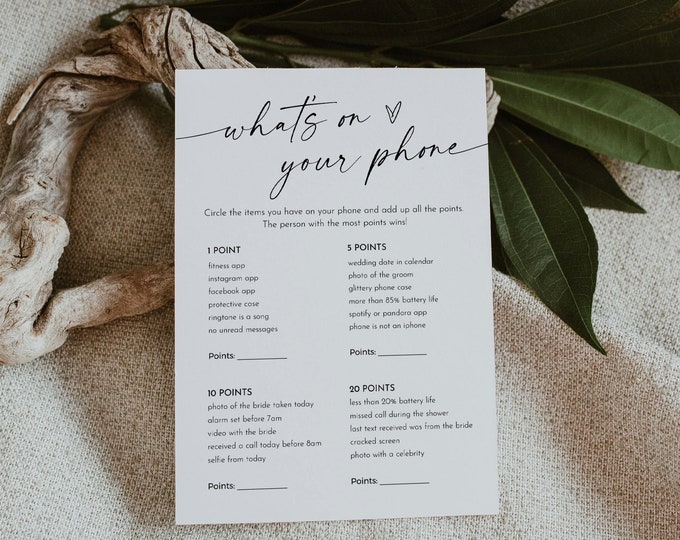 what's on
your phone
Circle the items you have on your phone and add up all the points.
The person with the most points wins!
1 POINT
fitness app
instagram app
facebook app
protective case
ringtone is a song
no unread messages
Points:
5 POINTS
wedding date in calendar
photo of the groom
glittery phone case
more than 85% battery life
spotify or pandora app
phone is not an iphone
Points:
10 POINTS
photo of the bride taken today
alarm set before 7am
video with the bride
received a call today before 8am
selfie from today
Points:
20 POINTS
less than 20% battery life
missed call during the shower
last text received was from the bride
cracked screen
photo with a celebrity
Points: